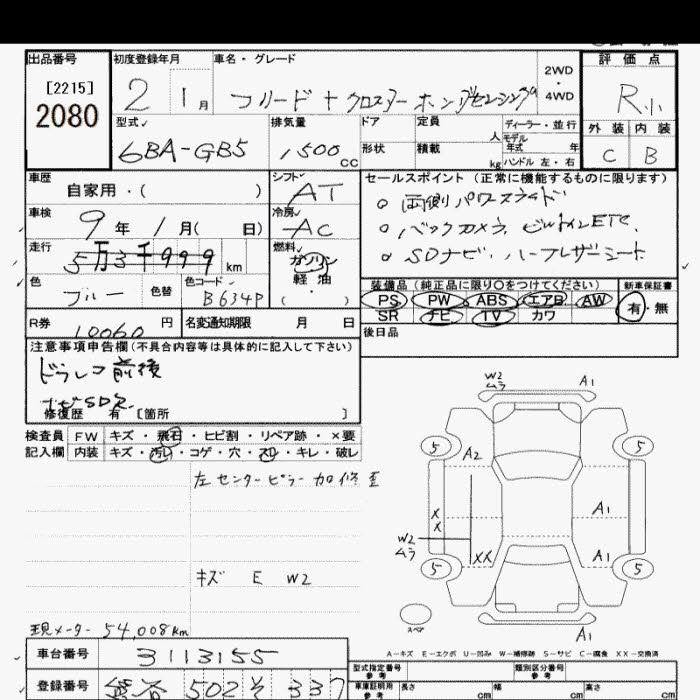 出品番号
[2215]
2080
初度登録年月
2 1月
車名・グレード
フリード + クロスター ホンダセンシング
2WD
・
4WD
評価点
R小
外装 内装
C B
型式
6BA-GB5
排気量
1,500cc
ドア
形状
定員
人
積載
kg
ディーラー・並行
モデル
年式 年
ハンドル 左・右
車歴
自家用・( )
シフト
AT
セールスポイント (正常に機能するものに限ります)
○ 両側パワースライド
○ バックカメラ、ビルトインETC、
○ SDナビ、ハーフレザーシート
車検
9年 1月( 日)
冷房
AC
走行
5万3千999km
燃料
ガソリン
軽油
・
( )
色
ブルー
色替
色コード
B634P
装備品 (純正品に限り○をつけてください)
PS PW ABS エアB AW
SR ナビ TV カワ
新車保証書
有・無
R券
10060円
名変通知期限 月 日
後日品
注意事項申告欄(不具合内容等は具体的に記入して下さい)
ドラレコ前後
ナビSD欠
修復歴 有 [箇所 ]
検査員 FW キズ・飛石・ヒビ割・リペア跡・×要
記入欄 内装 キズ・汚れ・コゲ・穴・スレ・キレ・破レ
左センターピラー加修歪
キズ E W2
現メーター 54,008km
W2
ムラ
A1
5
A2
5
X
X
A1
W2
ムラ
XX
A1
5
5
スペア
A1
A-キズ E-エクボ U-凹み W-補修跡 S-サビ C-腐食 XX-交換済
車台番号
3113155
登録番号
502 そ 337
型式指定番号
参考
類別区分番号
参考
車庫証明用
参考
長さ cm
幅 cm
高さ cm